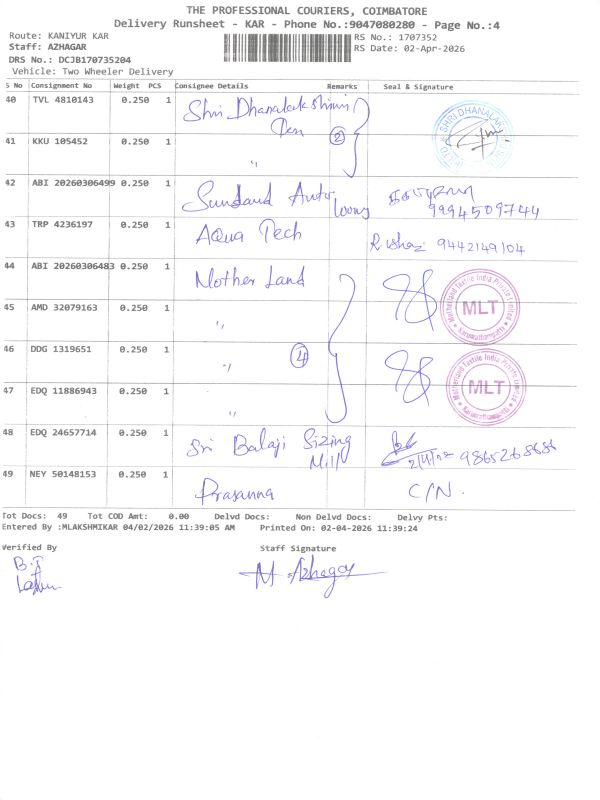 THE PROFESSIONAL COURIERS, COIMBATORE
Delivery Runsheet - KAR - Phone No.:9047080280 - Page No.:4
Route: KANIYUR KAR
RS No.: 1707352
Staff: AZHAGAR
RS Date: 02-Apr-2026
DRS No.: DCJB170735204
Vehicle: Two Wheeler Delivery
S No Consignment No Weight PCS Consignee Details Remarks Seal & Signature
40 TVL 4810143 0.250 1 Shri Dhanalakshmi
Tex
SHRI DHANALAK
2
41 KKU 105452 0.250 1 "
42 ABI 20260306499 0.250 1 Sundand Auto Looms
9994509744
43 TRP 4236197 0.250 1 Aqua Tech
9442149104
44 ABI 20260306483 0.250 1 Mother Land
Motherland Textile India Private Limited
MLT
Karuvattampatti
45 AMD 32079163 0.250 1 "
46 DDG 1319651 0.250 1 "
4
Motherland Textile India Private Limited
MLT
Karuvattampatti
47 EDQ 11886943 0.250 1 "
48 EDQ 24657714 0.250 1 Sri Balaji Sizing
Mill
49 NEY 50148153 0.250 1 Prasanna C/N.
Tot Docs: 49 Tot COD Amt: 0.00 Delvd Docs: Non Delvd Docs: Delvy Pts:
Entered By :MLAKSHMIKAR 04/02/2026 11:39:05 AM Printed On: 02-04-2026 11:39:24
Verified By Staff Signature
M Azhagar